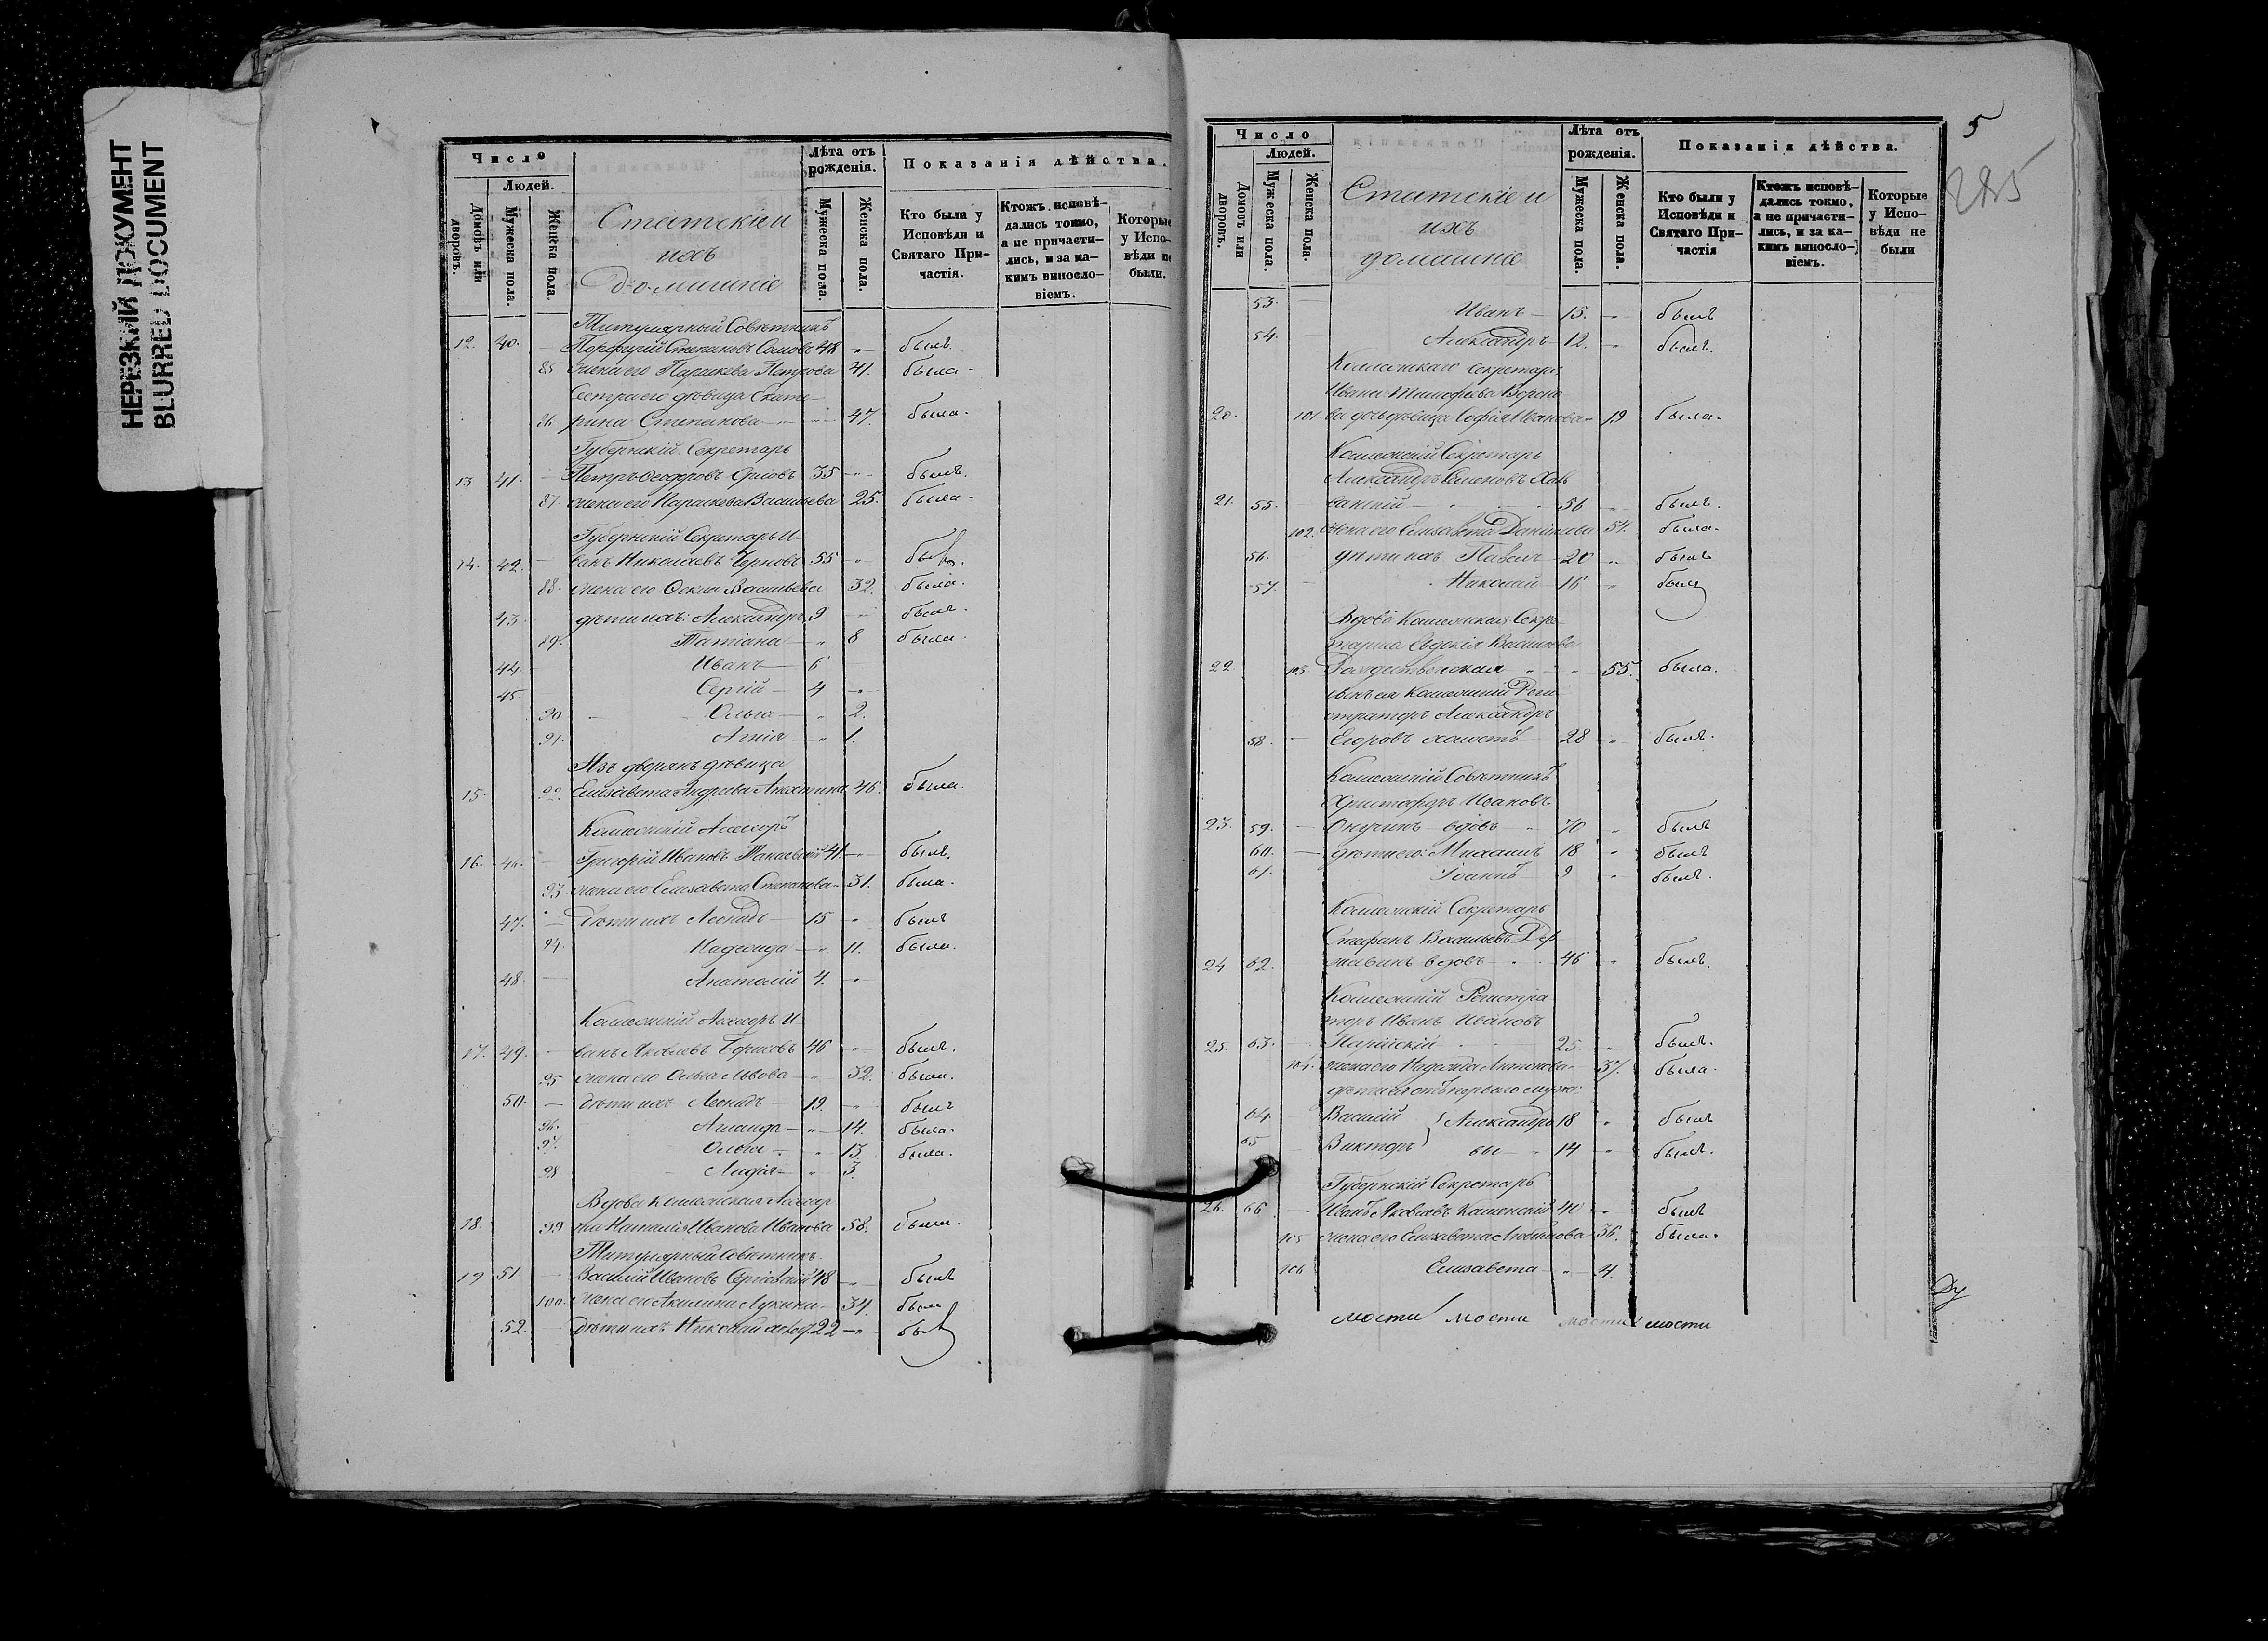 НЕРЕЗКИЙ ДОКУМЕНТ
BLURRED DOCUMENT
Число
Людей.
Домовъ или дворовъ.
Мужеска пола.
Женска пола.
Статскіе и
ихъ
домашніе
Лѣта отъ рожденія.
Мужеска пола.
Женска пола.
Показанія дѣйства.
Кто были у Исповѣди и Святаго Причастія.
Ктожъ исповѣдались токмо, а не причастились, и за какимъ винословіемъ.
Которые у Исповѣди не были.
Титулярный Совѣтникъ
12. 40. Порфирій Степановъ Сомовъ 48 былъ.
85 жена его Параскева Петрова 41. была
Сестра его дѣвица Екате-
86 рина Степанова 47. была.
Губернскій Секретарь
13 41. Петръ Ѳеодоровъ Орловъ 35 былъ.
87 жена его Параскева Васильева 25. была
Губернскій Секретарь И-
14. 42. ванъ Николаевъ Черновъ 55 былъ.
88. жена его Ѳекла Васильева 32. была.
43. дѣти ихъ: Александръ 9 былъ.
89. Татіана 8 была.
44. Иванъ 6
45. Сергій 4
90 Ольга 2.
91. Агнія 1.
Изъ дворянъ дѣвица
15. 92. Елисавета Андреева 46. была.
Коллежскій Ассесоръ
16. 46. Григорій Ивановъ 41. былъ.
93. жена его Елисавета Степанова 31. была.
47. Дѣти ихъ Леонидъ 15 былъ
94. Надежда 11. была.
48. Анатолій 4.
Коллежскій Ассесоръ И-
17. 49. ванъ Яковлевъ 46 былъ.
95 жена его Ольга Львова 32. была.
50. дѣти ихъ Леонидъ 19. былъ
96. 14. была.
97. Ольга 13. была.
98. Лидія 3.
Вдова Коллежская Ассесор
18. 99 ша Наталія Иванова Иванова 58. была.
Титулярный Совѣтникъ
19 51. Василій Ивановъ Сергіевскій 48 былъ
100. жена его Акилина Лукина 34. была
52. дѣти ихъ Николай 22 былъ
5
285
Число
Людей.
Домовъ или дворовъ.
Мужеска пола.
Женска пола.
Статскіе и
ихъ
домашніе
Лѣта отъ рожденія.
Мужеска пола.
Женска пола.
Показанія дѣйства.
Кто были у Исповѣди и Святаго Причастія
Ктожъ исповѣдались токмо, а не причастились, и за какимъ винословіемъ.
Которые у Исповѣди не были
53. Иванъ 15. былъ
54. Александръ 12. былъ.
Коллежскаго Секретаря
Ивана Тимофеева Ворона
20. 101. ва дочь дѣвица Софія Иванова 19 была.
Коллежскій Секретарь
Александръ Семеновъ Хал
21. 55. ванскій 56 былъ.
102. жена его Елисавета Даніилова 54. была.
56. дѣти ихъ Павелъ 20 былъ
57. Николай 16 былъ
Вдова Коллежская Секре
тарша Евдокія Васильева
22. 103 Рождественская 55. была.
сынъ ея Коллежскій Реги
страторъ Александръ
58. Егоровъ холостъ 28 былъ.
Коллежскій Совѣтникъ
Христофоръ Ивановъ
23. 59. Онучинъ вдовъ 70 былъ
60. дѣти его: Михаилъ 18 былъ
61. Іоаннъ 9 былъ.
Коллежскій Секретарь
Стефанъ Васильевъ Дер
24 62. жавинъ вдовъ 46 былъ.
Коллежскій Регистра
торъ Иванъ Ивановъ
25. 63. 25. былъ.
104. жена его Надежда Антонова 37. была.
дѣти ея отъ перваго мужа:
64. Василій } Александро 18 былъ
65 Викторъ } вы 14 былъ.
Губернскій Секретарь
26. 66 Иванъ Яковлевъ Каменскій 40 былъ
105 жена его Елисавета 36. была.
106 Елисавета 4.
мости мости мости мости
Ду